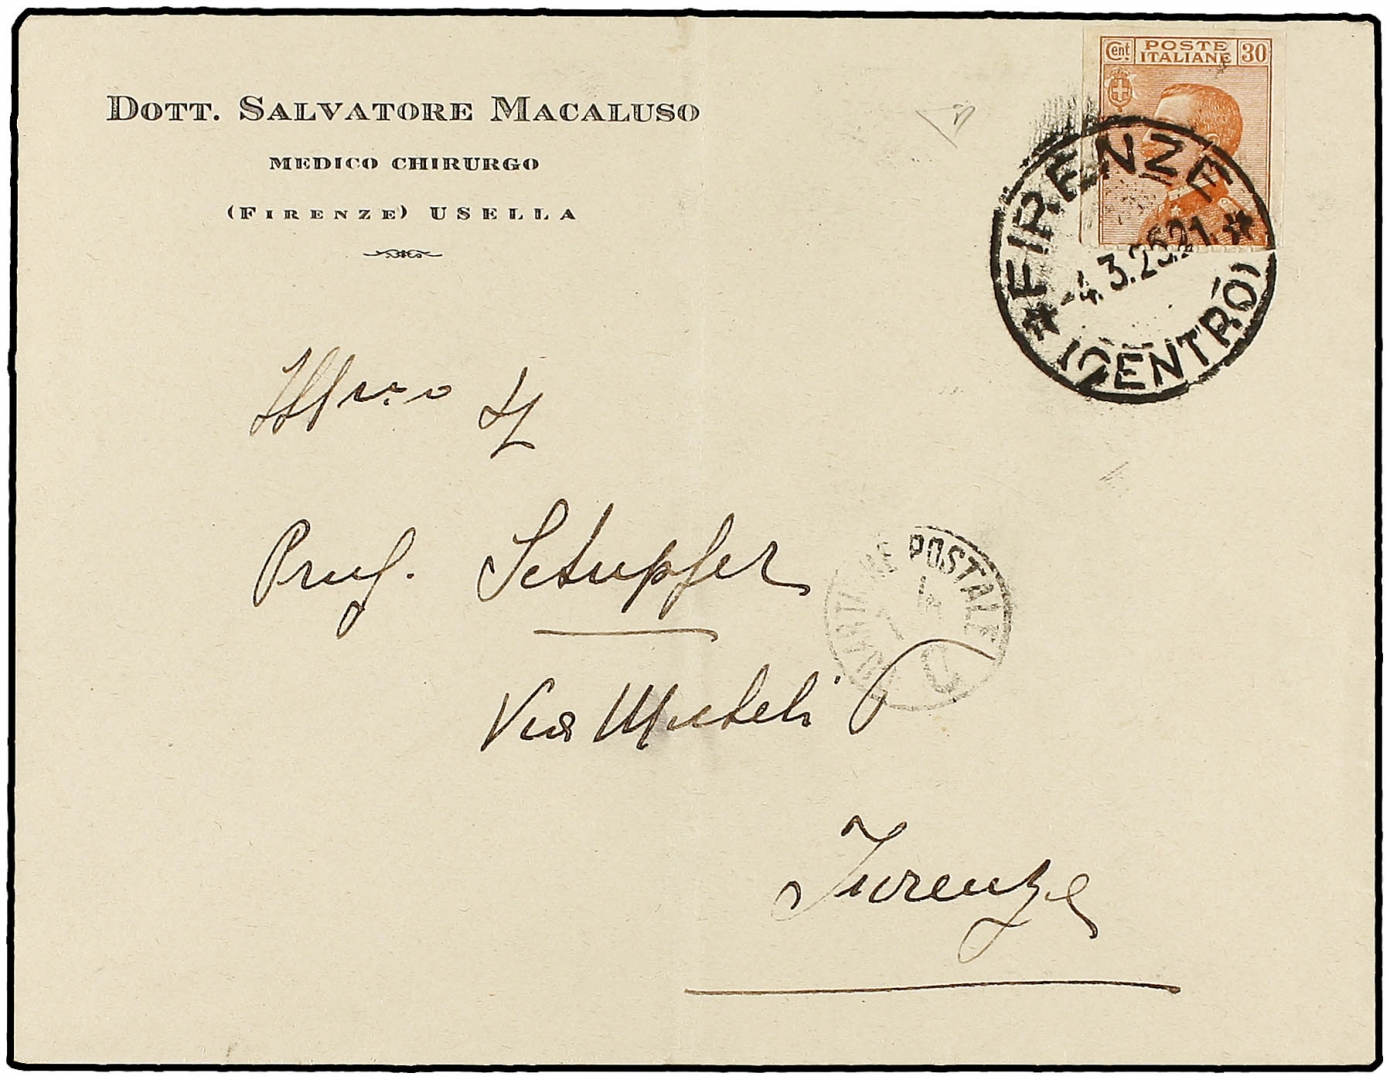 DOTT. SALVATORE MACALUSO
MEDICO CHIRURGO
(FIRENZE) USELLA
Cent. POSTE ITALIANE 30
* FIRENZE *
-4.3.25.21.
(CENTRO)
Ill mo
Prof. Schupfer
POSTALE
Via
Firenze